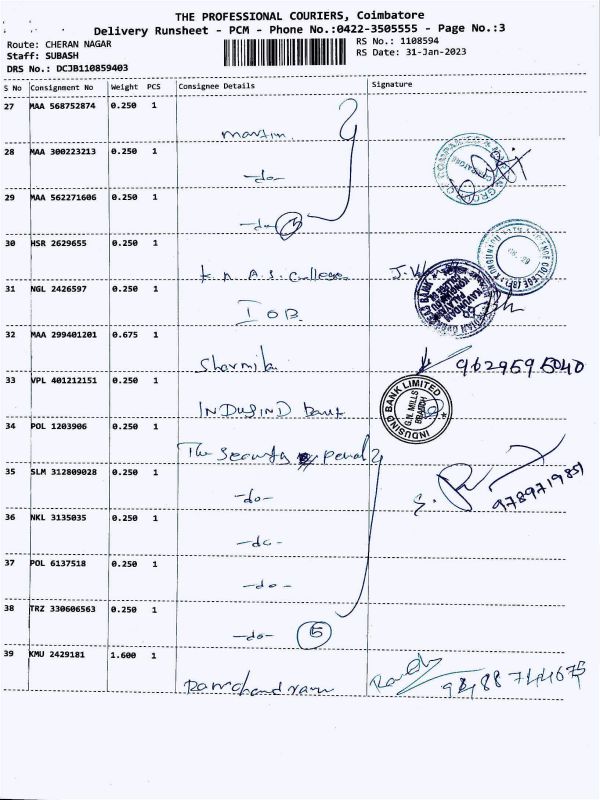 THE PROFESSIONAL COURIERS, Coimbatore
Delivery Runsheet - PCM - Phone No.:0422-3505555 - Page No.:3
Route: CHERAN NAGAR
RS No.: 1108594
Staff: SUBASH
RS Date: 31-Jan-2023
DRS No.: DCJB110859403
S No Consignment No Weight PCS Consignee Details Signature
27 MAA 568752874 0.250 1
martin
28 MAA 300223213 0.250 1
-do-
29 MAA 562271606 0.250 1
-do- 3
30 HSR 2629655 0.250 1
K.N.A.S. College
31 NGL 2426597 0.250 1
IOB
32 MAA 299401201 0.675 1
Sharmila 9629595040
33 VPL 401212151 0.250 1
INDUSIND Bank
INDUSIND BANK LIMITED
G.N. MILLS
BRANCH
34 POL 1203906 0.250 1
The Security
35 SLM 312809028 0.250 1
-do- 9789719851
36 NKL 3135035 0.250 1
-do-
37 POL 6137518 0.250 1
-do-
38 TRZ 330606563 0.250 1
-do- 5
39 KMU 2429181 1.600 1
Ramchandran